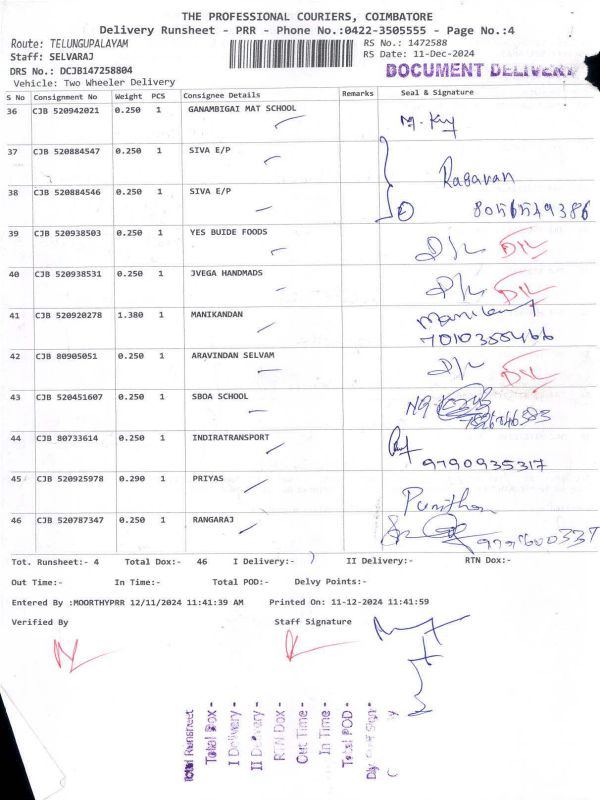 THE PROFESSIONAL COURIERS, COIMBATORE
Delivery Runsheet - PRR - Phone No.:0422-3505555 - Page No.:4
Route: TELUNGUPALAYAM
RS No.: 1472588
Staff: SELVARAJ
RS Date: 11-Dec-2024
DRS No.: DCJB147258804
DOCUMENT DELIVERY
Vehicle: Two Wheeler Delivery
S No Consignment No Weight PCS Consignee Details Remarks Seal & Signature
36 CJB 520942021 0.250 1 GANAMBIGAI MAT SCHOOL
37 CJB 520884547 0.250 1 SIVA E/P
Ragavan
38 CJB 520884546 0.250 1 SIVA E/P
39 CJB 520938503 0.250 1 YES BUIDE FOODS D/L D/L
40 CJB 520938531 0.250 1 JVEGA HANDMADS D/L D/L
41 CJB 520920278 1.380 1 MANIKANDAN
42 CJB 80905051 0.250 1 ARAVINDAN SELVAM D/L D/L
43 CJB 520451607 0.250 1 SBOA SCHOOL
44 CJB 80733614 0.250 1 INDIRATRANSPORT
9790935317
45 CJB 520925978 0.290 1 PRIYAS
46 CJB 520787347 0.250 1 RANGARAJ
Tot. Runsheet:- 4 Total Dox:- 46 I Delivery:- II Delivery:- RTN Dox:-
Out Time:- In Time:- Total POD:- Delvy Points:-
Entered By :MOORTHYPRR 12/11/2024 11:41:39 AM Printed On: 11-12-2024 11:41:59
Verified By Staff Signature
Total Runsheet
Total Dox -
I Delivery -
II Delivery -
RTN Dox -
Out Time -
In Time -
Total POD -